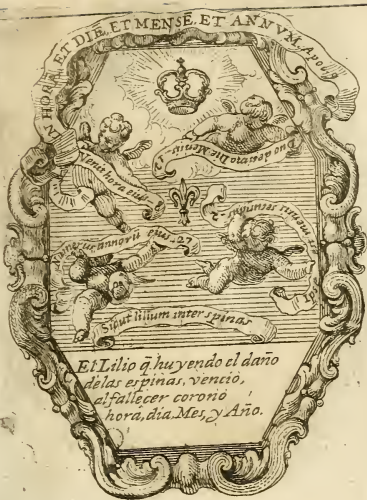 N HORĀ, ET DIĒ, ET MENSE, ET ANNVM, Apo. 9
Venit hora eius
Duodevino Die Mensis
numerus annorū eius. 27
Sicut lilium inter spinas
El Lilio q̄ huyendo el daño
delas espinas, vencio,
al fallecer coronò
hora, dia, Mes, y Año.